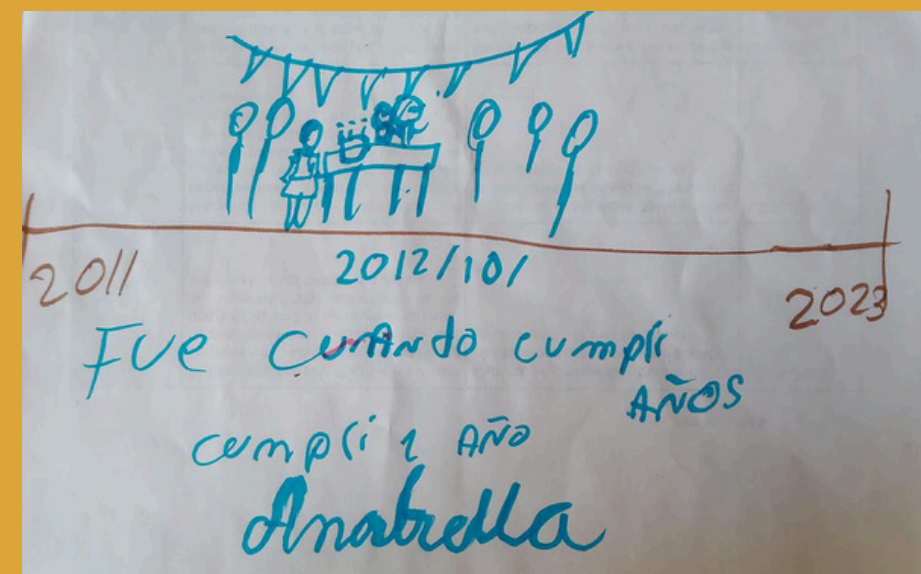 2011 2012/10/ 2023
Fue cuando cumplí
AÑOS
cumplí 1 AÑO
Anabrella